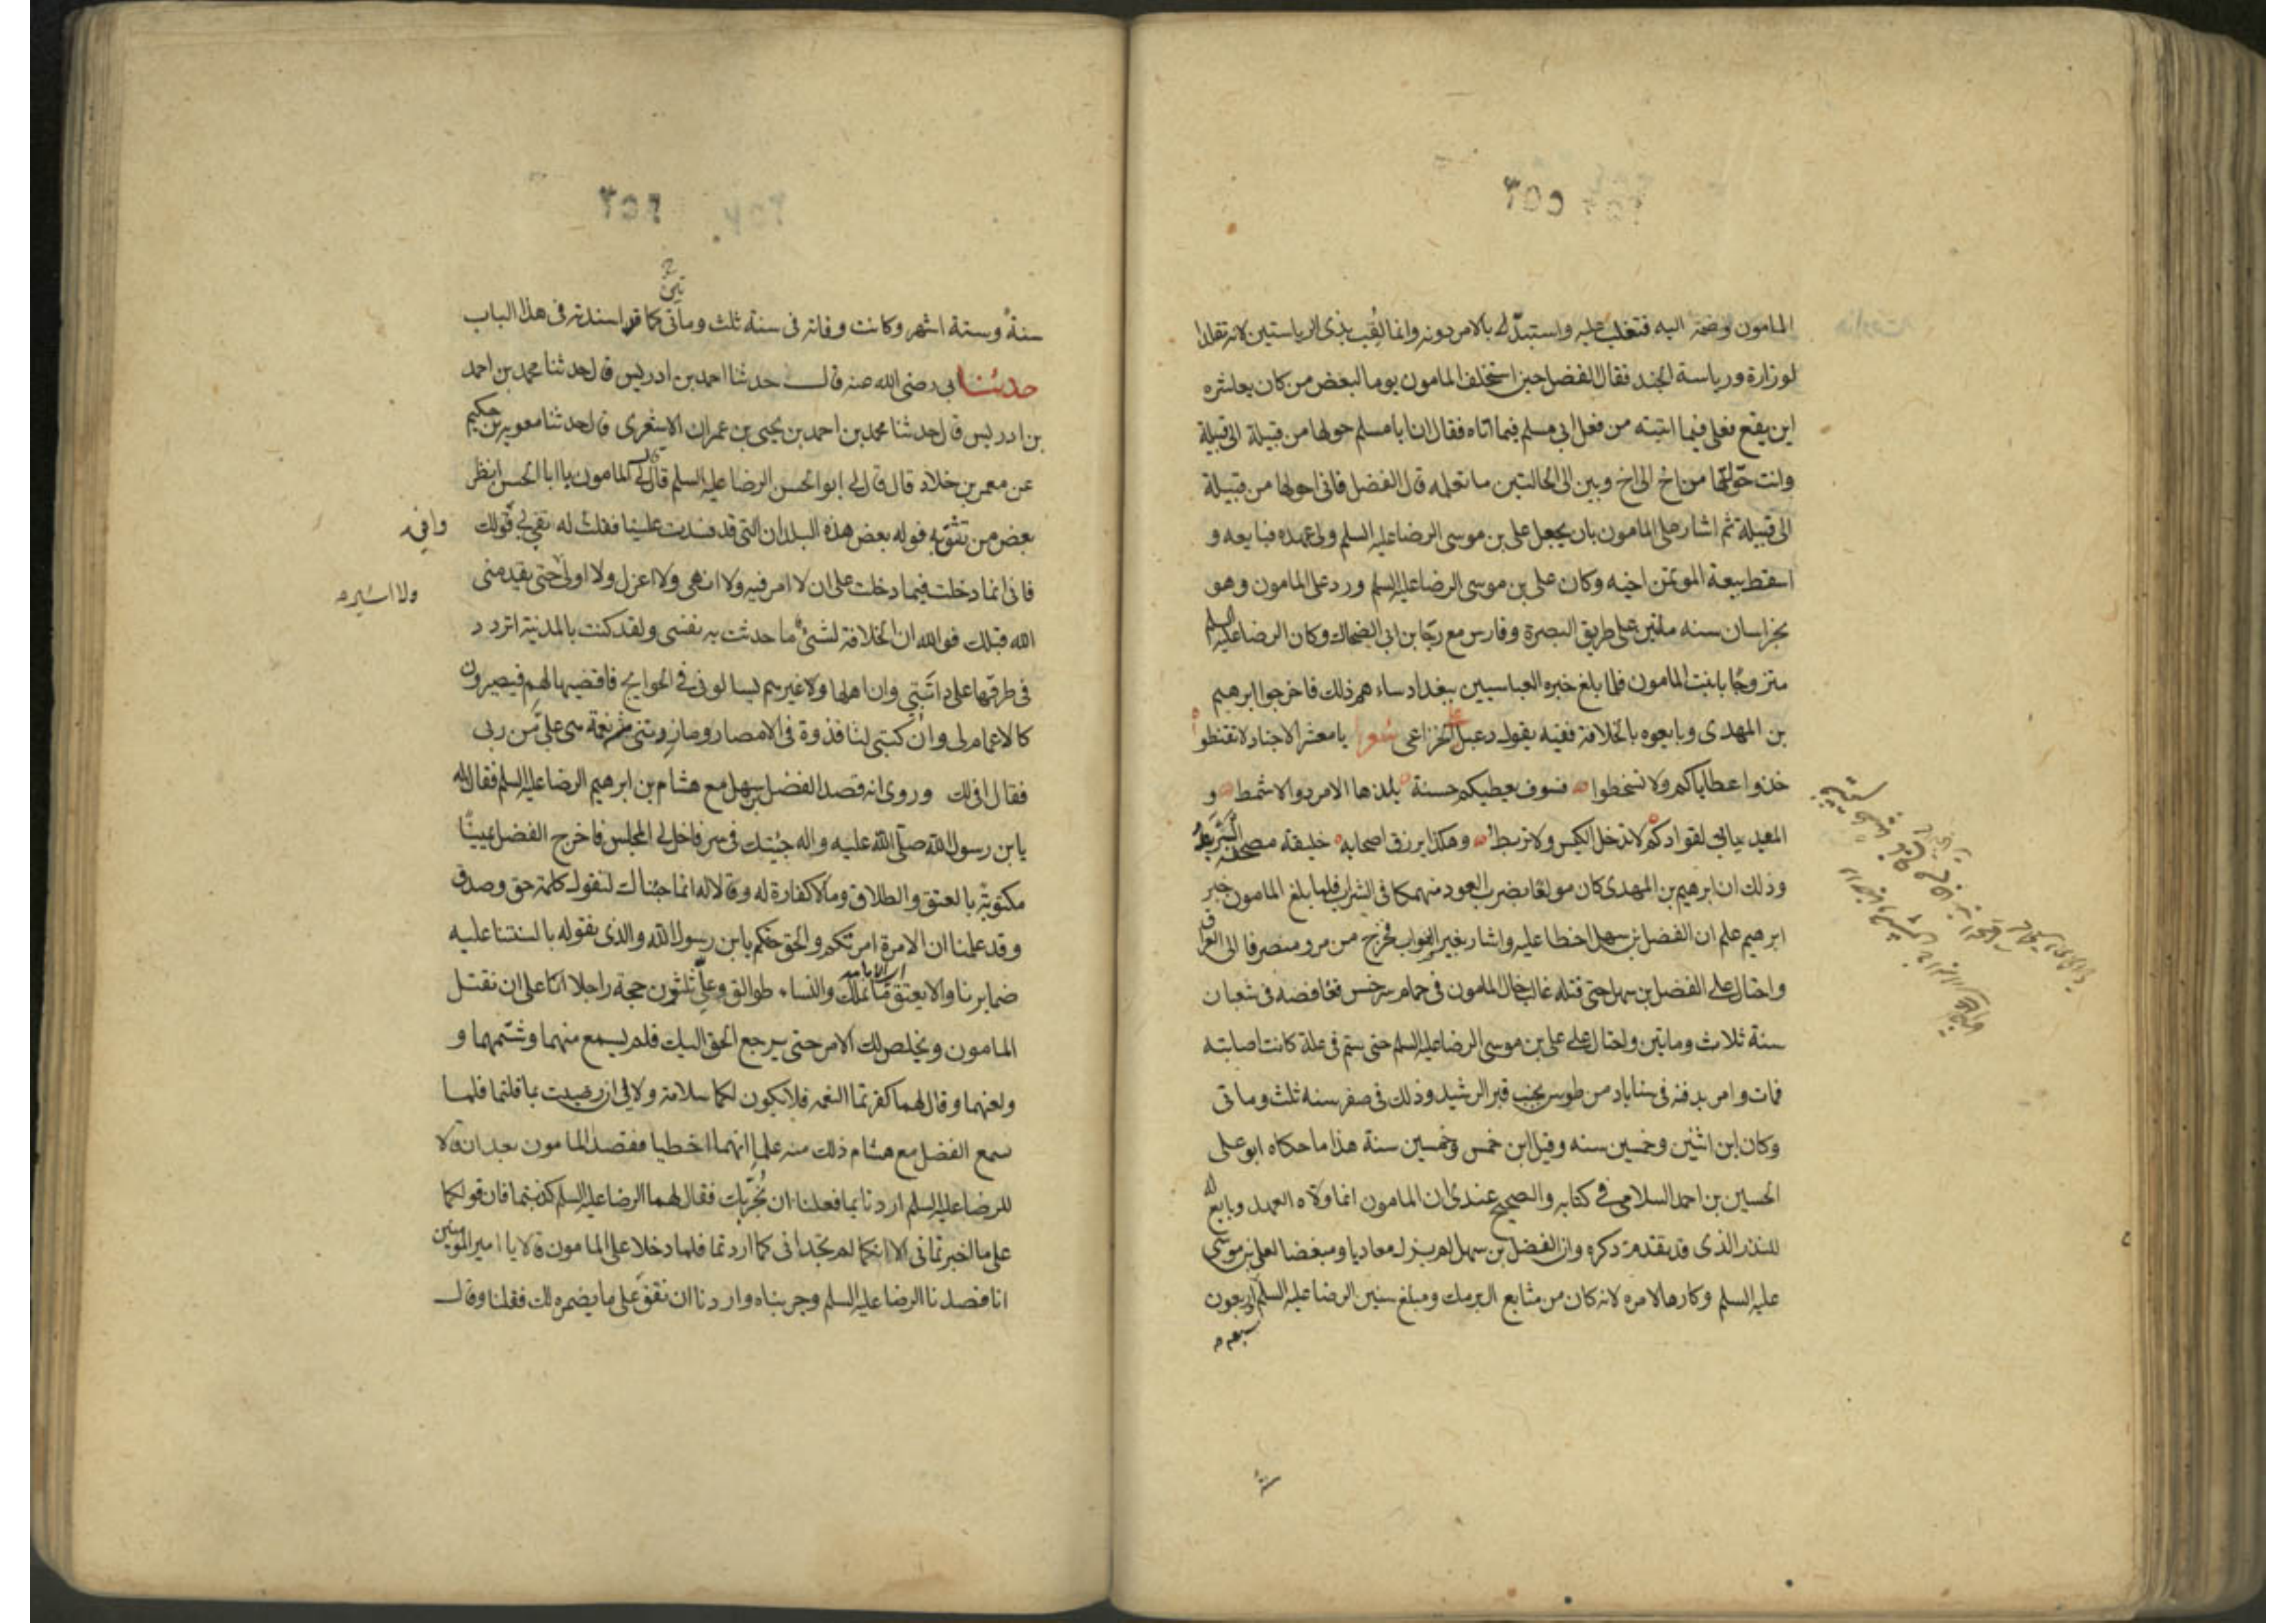 ٣٥٥
المامون وضمه اليه فتغلب عليه واستبد له بالامر دونه وانما لُقب بذى الرياستين لانه تقلد ا
لوزارة ورياسة الجند فقال الفضل حين استخلف المامون يوما لبعض من كان يعاشره
اين يقع فعلى فيما اتيته من فعل ابى مسلم فيما اتاه فقال ان ابا مسلم حولها من قبيلة الى قبيلة
وانت حوّلتها من اخ الى اخ وبين الى الحالتين ما تعلمه قال الفضل فانى احولها من قبيلة
الى قبيلة ثم اشار على المامون بان يجعل على بن موسى الرضا عليه السلم ولى عهده فبايعه و
اسقط بيعة الموتمن اخيه وكان على بن موسى الرضا عليه السلم ورد على المامون وهو
بخراسان سنه مأتين على طريق البصرة وفارس مع رجّا بن ابى الضحاك وكان الرضا عليه السلم
متزوجًا بابنت المامون فلما بلغ خبره العباسيين ببغداد ساءهم ذلك فاخرجوا ابرهيم
بن المهدى وبايعوه بالخلافة ففيه يقول دعبل الخزاعى شعر يا معشر الاجناد لا تقنطوا
خذوا عطاياكم ولا تسخطوا فسوف يعطيكم حسنة يلذها الامرد والاشمط و
المعيديات لقوادكم لا تدخل الكيس ولا تربط وهكذا يرزق اصحابه خليفة مصحفه البربط
وذلك ان ابرهيم بن المهدى كان مولعًا بضرب العود منهمكا فى الشراب فلما بلغ المامون خبر
ابرهيم علم ان الفضل بن سهل اخطا عليه واشار بغير الصواب فخرج من مرو منصرفا الى العراق
واحتال على الفضل بن سهل حتى قتله غالب خال المامون فى حمام سرخس مغافصه فى شعبان
سنة ثلاث ومايتين واحتال على على بن موسى الرضا عليه السلم حتى سم فى علة كانت اصابته
فمات وامر بدفنه فى سناباد من طوس بجنب قبر الرشيد وذلك فى صفر سنه ثلث وماتى
وكان ابن اثنين وخمسين سنه وقيل ابن خمس وخمسين سنة هذا ما حكاه ابو على
الحسين بن احمد السلامى فى كتابه والصحيح عندى ان المامون انما ولاه العهد وبايع له
للنذر الذى قد تقدم ذكره وان الفضل بن سهل لم يزل معاديا ومبغضا لعلى بن موسى
عليه السلم وكارها لامره لانه كان من صنايع ال برمك ومبلغ سنين الرضا عليه السلم اربعون
سبع م
٣٥٦
سنةً وستة اشهر وكانت وفاته فى سنة ثلث ومأتى كما قد اسندته فى هذا الباب
تين
حدثنا ابى رضى الله عنه قال حدثنا احمد بن ادريس قال حدثنا محمد بن احمد
بن ادريس قال حدثنا محمد بن احمد بن يحيى بن عمران الاشعرى قال حدثنا معويه بن حكيم
عن معمر بن خلاد قال قال لى ابو الحسن الرضا عليه السلم قال لى المامون يا ابا الحسن انظر
بعض من تثق به فوله بعض هذه البلدان التى قد فسدت علينا فقلت له تفى لى قولك
وافى
فانى انما دخلت فيما دخلت على ان لا امر فيه ولا انهى ولا اعزل ولا اولى حتى يقدمنى
ولا اشير م
الله قبلك فوالله ان الخلافة لشئ ما حدثت به نفسى ولقد كنت بالمدنية اتردد
فى طرقها على دابتى وان اهلها ولا غيرهم يسالونى فى الحوايج فاقضيها لهم فيصيرون
كالاعمام لى وان كتبى لنافذة فى الامصار وما زدتنى من نعمة هى على من ربى
فقال افى لك وروى انه قصد الفضل بن سهل مع هشام بن ابرهيم الرضا عليه السلم فقال له
يابن رسول الله صلى الله عليه واله جئتك فى سر فاخل لى المجلس فاخرج الفضل يمينًا
مكتوبة بالعتق والطلاق وما لا كفارة له وقالا له انما جئناك لنقول كلمة حق وصدق
وقد علمنا ان الامرة امرتكم والحق حقكم يابن رسول الله والذى نقوله بالسنتنا عليه
ضمايرنا والا يعتق ما نملك والنساء طوالق وعلى ثلثون حجة راجلا انا على ان نقتل
المامون ونخلص لك الامر حتى يرجع الحق اليك فلم يسمع منهما وشتمهما و
ولعنهما وقال لهما كفرتما النعمه فلا تكون لكما سلامة ولا لى ان رضيت بما قلتما فلما
سمع الفضل مع هشام ذلك منه علما انهما اخطيا فقصد المامون بعد ان قالا
للرضا عليه السلم اردنا بما فعلنا ان نُجرّبك فقال لهما الرضا عليه السلم كذبتما فان قولكما
على ما اخبرتمانى الا انكما لم تجدانى كما اردتما فلما دخلا على المامون قالا يا امير المومنين
انا قصدنا الرضا عليه السلم وجربناه واردنا ان نقف على ما يضمره لك فقلنا وقال